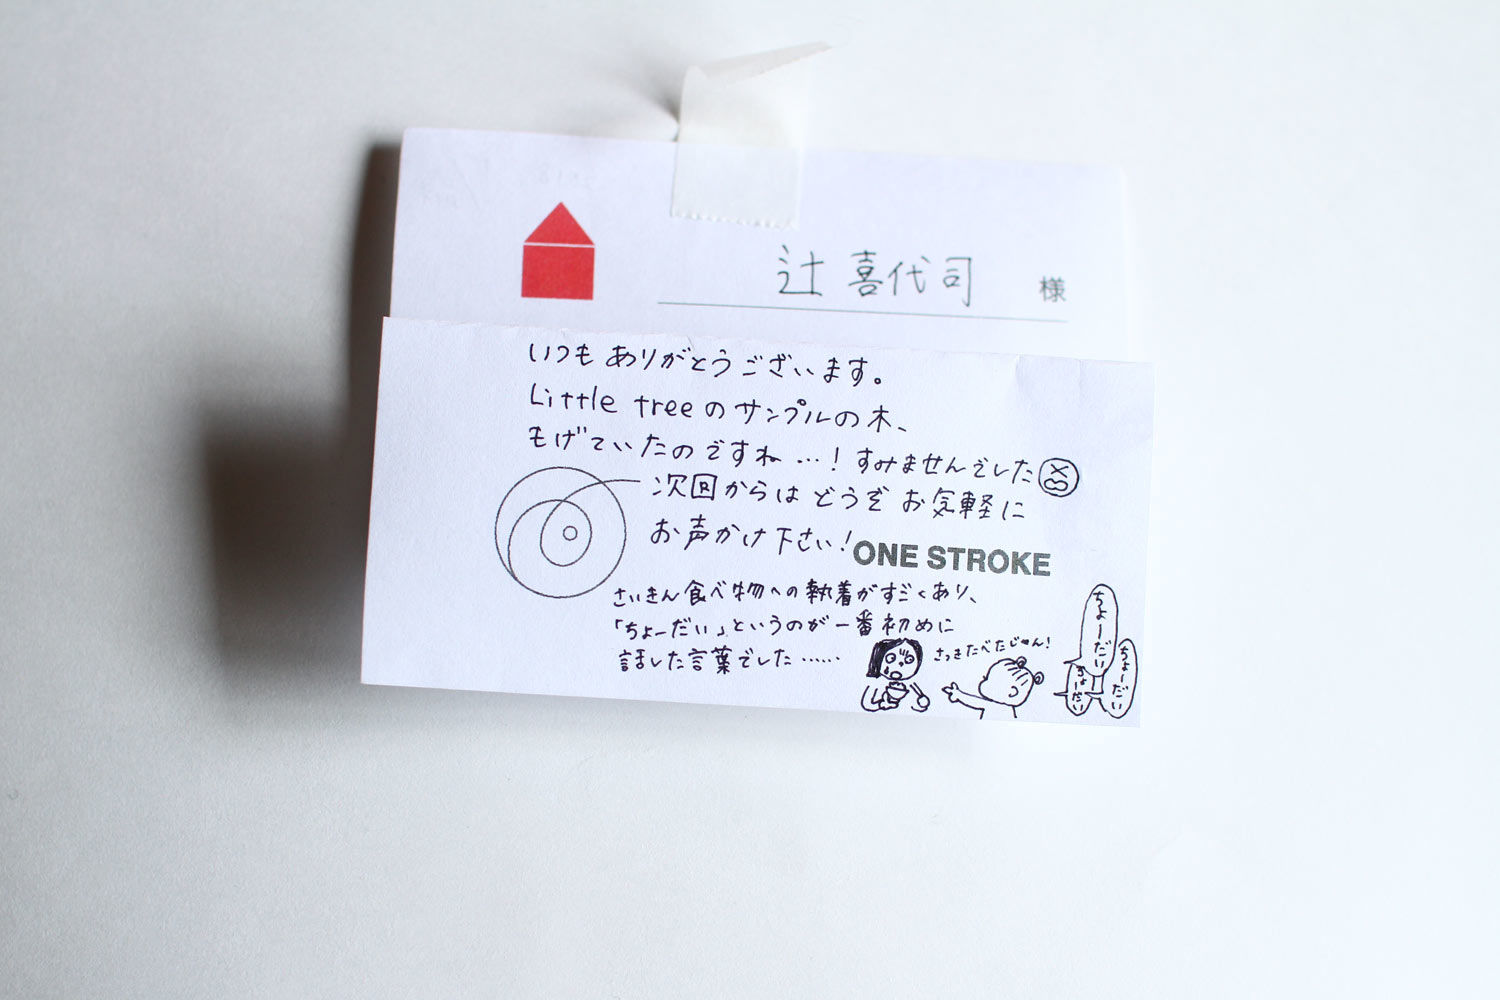 辻 喜代司 様
いつもありがとうございます。
Little treeのサンプルの木、
もげていたのですね…！すみませんでした
次回からはどうぞお気軽に
お声かけ下さい！
ONE STROKE
さいきん食べ物への執着がすごくあり、
「ちょーだい」というのが一番初めに
話した言葉でした……
さっきたべたじゃん！
ちょーだい
ちょーだい
ちょーだい